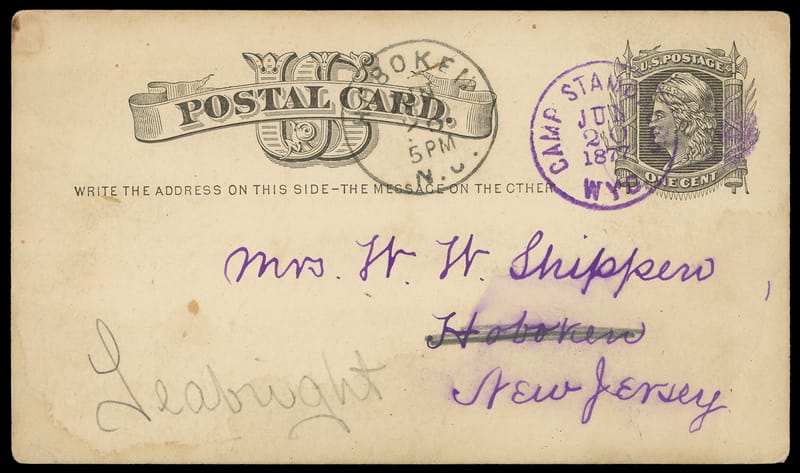 U.S. POSTAGE
US
POSTAL CARD.
ONE CENT
HOBOKEN
5 PM
N.J.
CAMP STAMB
JUN
20
1877
WYO
WRITE THE ADDRESS ON THIS SIDE-THE MESSAGE ON THE OTHER
Mrs. W. W. Shippen
Hoboken
New Jersey
Seabright